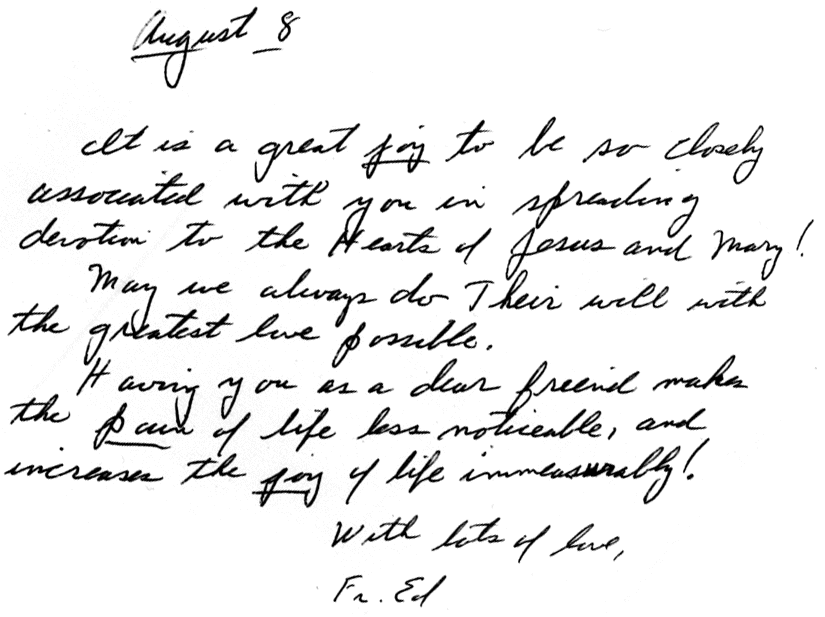 August 8
It is a great joy to be so closely
associated with you in spreading
devotion to the Hearts of Jesus and Mary!
May we always do Their will with
the greatest love possible.
Having you as a dear friend makes
the pain of life less noticeable, and
increases the joy of life immeasurably!
With lots of love,
Fr. Ed